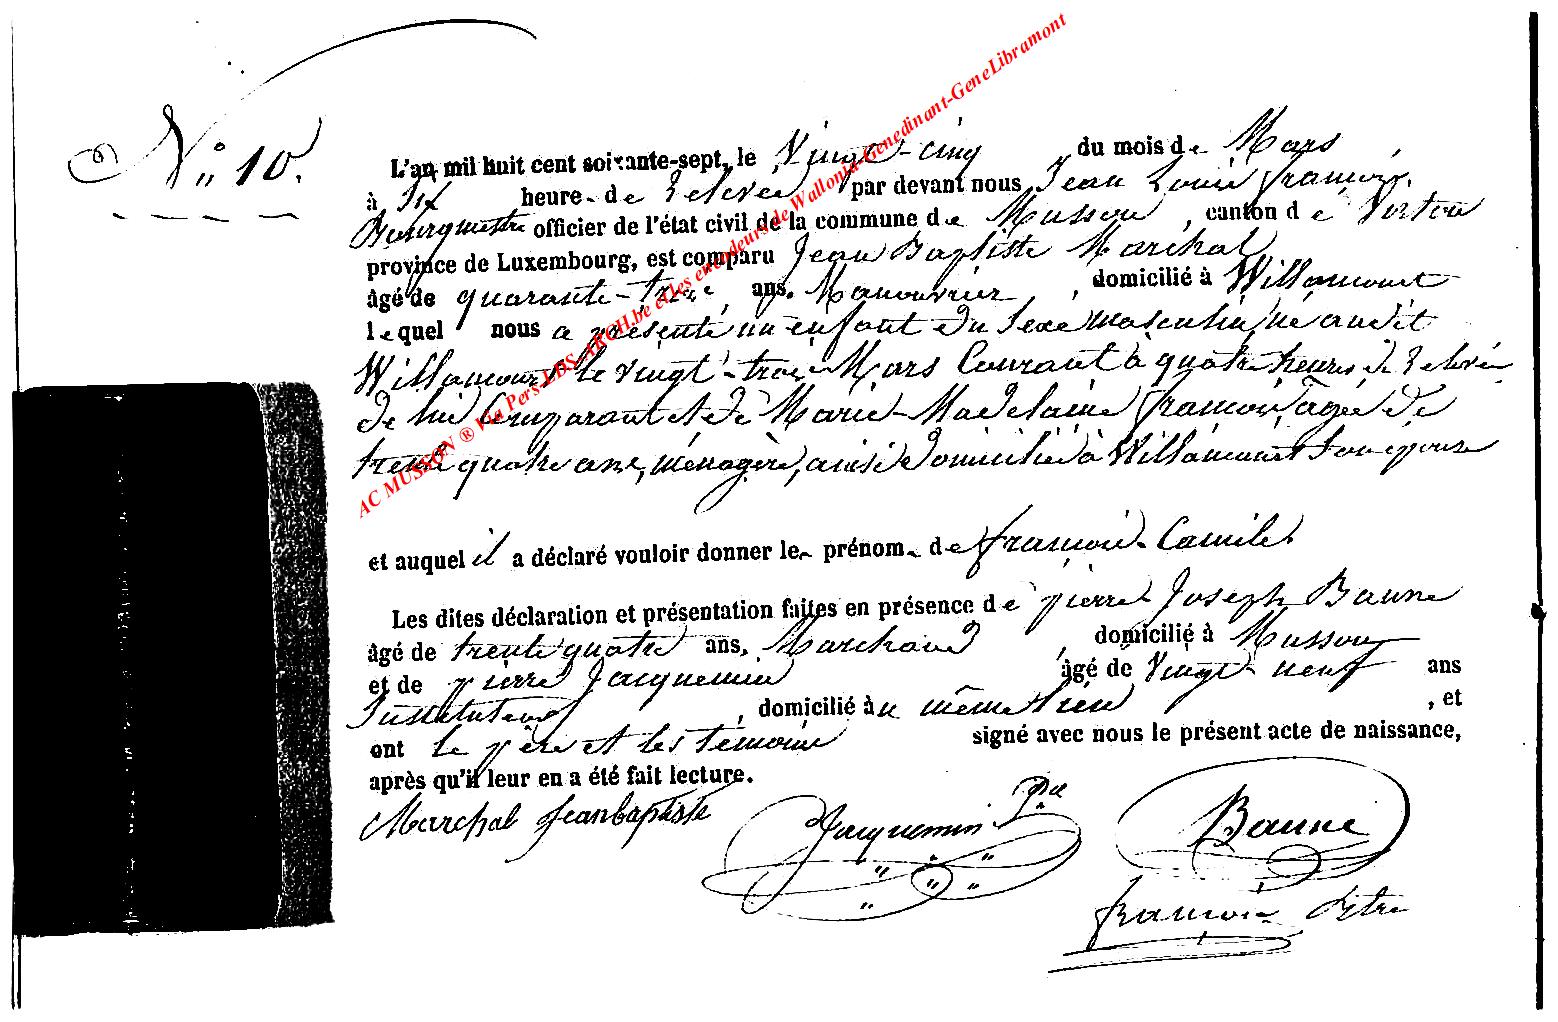 N° 10.
L'an mil huit cent soixante-sept, le Vingt-cinq du mois de Mars
à Six heure de relevée par devant nous Jean Louis François,
Bourgmestre officier de l'état civil de la commune de Musson, canton de Virton
province de Luxembourg, est comparu Jean Baptiste Maréchal
âgé de quarante-trois ans, Manouvrier, domicilié à Willancourt
lequel nous a présenté un enfant du sexe masculin, né audit
Willancourt le vingt-trois Mars Courant à quatre heures de relevée
de lui Comparant et de Marie-Madelaine François, agée de
trente quatre ans, ménagère, aussi domiciliée à Willancourt son épouse
et auquel il a déclaré vouloir donner le prénom de François-Camile.
Les dites déclaration et présentation faites en présence de pierre Joseph Baune
âgé de trente quatre ans, Marchand, domicilié à Musson
et de pierre Jacquemin âgé de Vingt-neuf ans
Instituteur, domicilié au même lieu, et
ont le père et les témoins signé avec nous le présent acte de naissance,
après qu'il leur en a été fait lecture.
Marchal Jeanbaptiste
Jacquemin Pre
Baune
François
AC MUSSON ® Via Pers-LDS-ARCH.be et les encodeurs de Wallonia-Genedinant-GeneLibramont